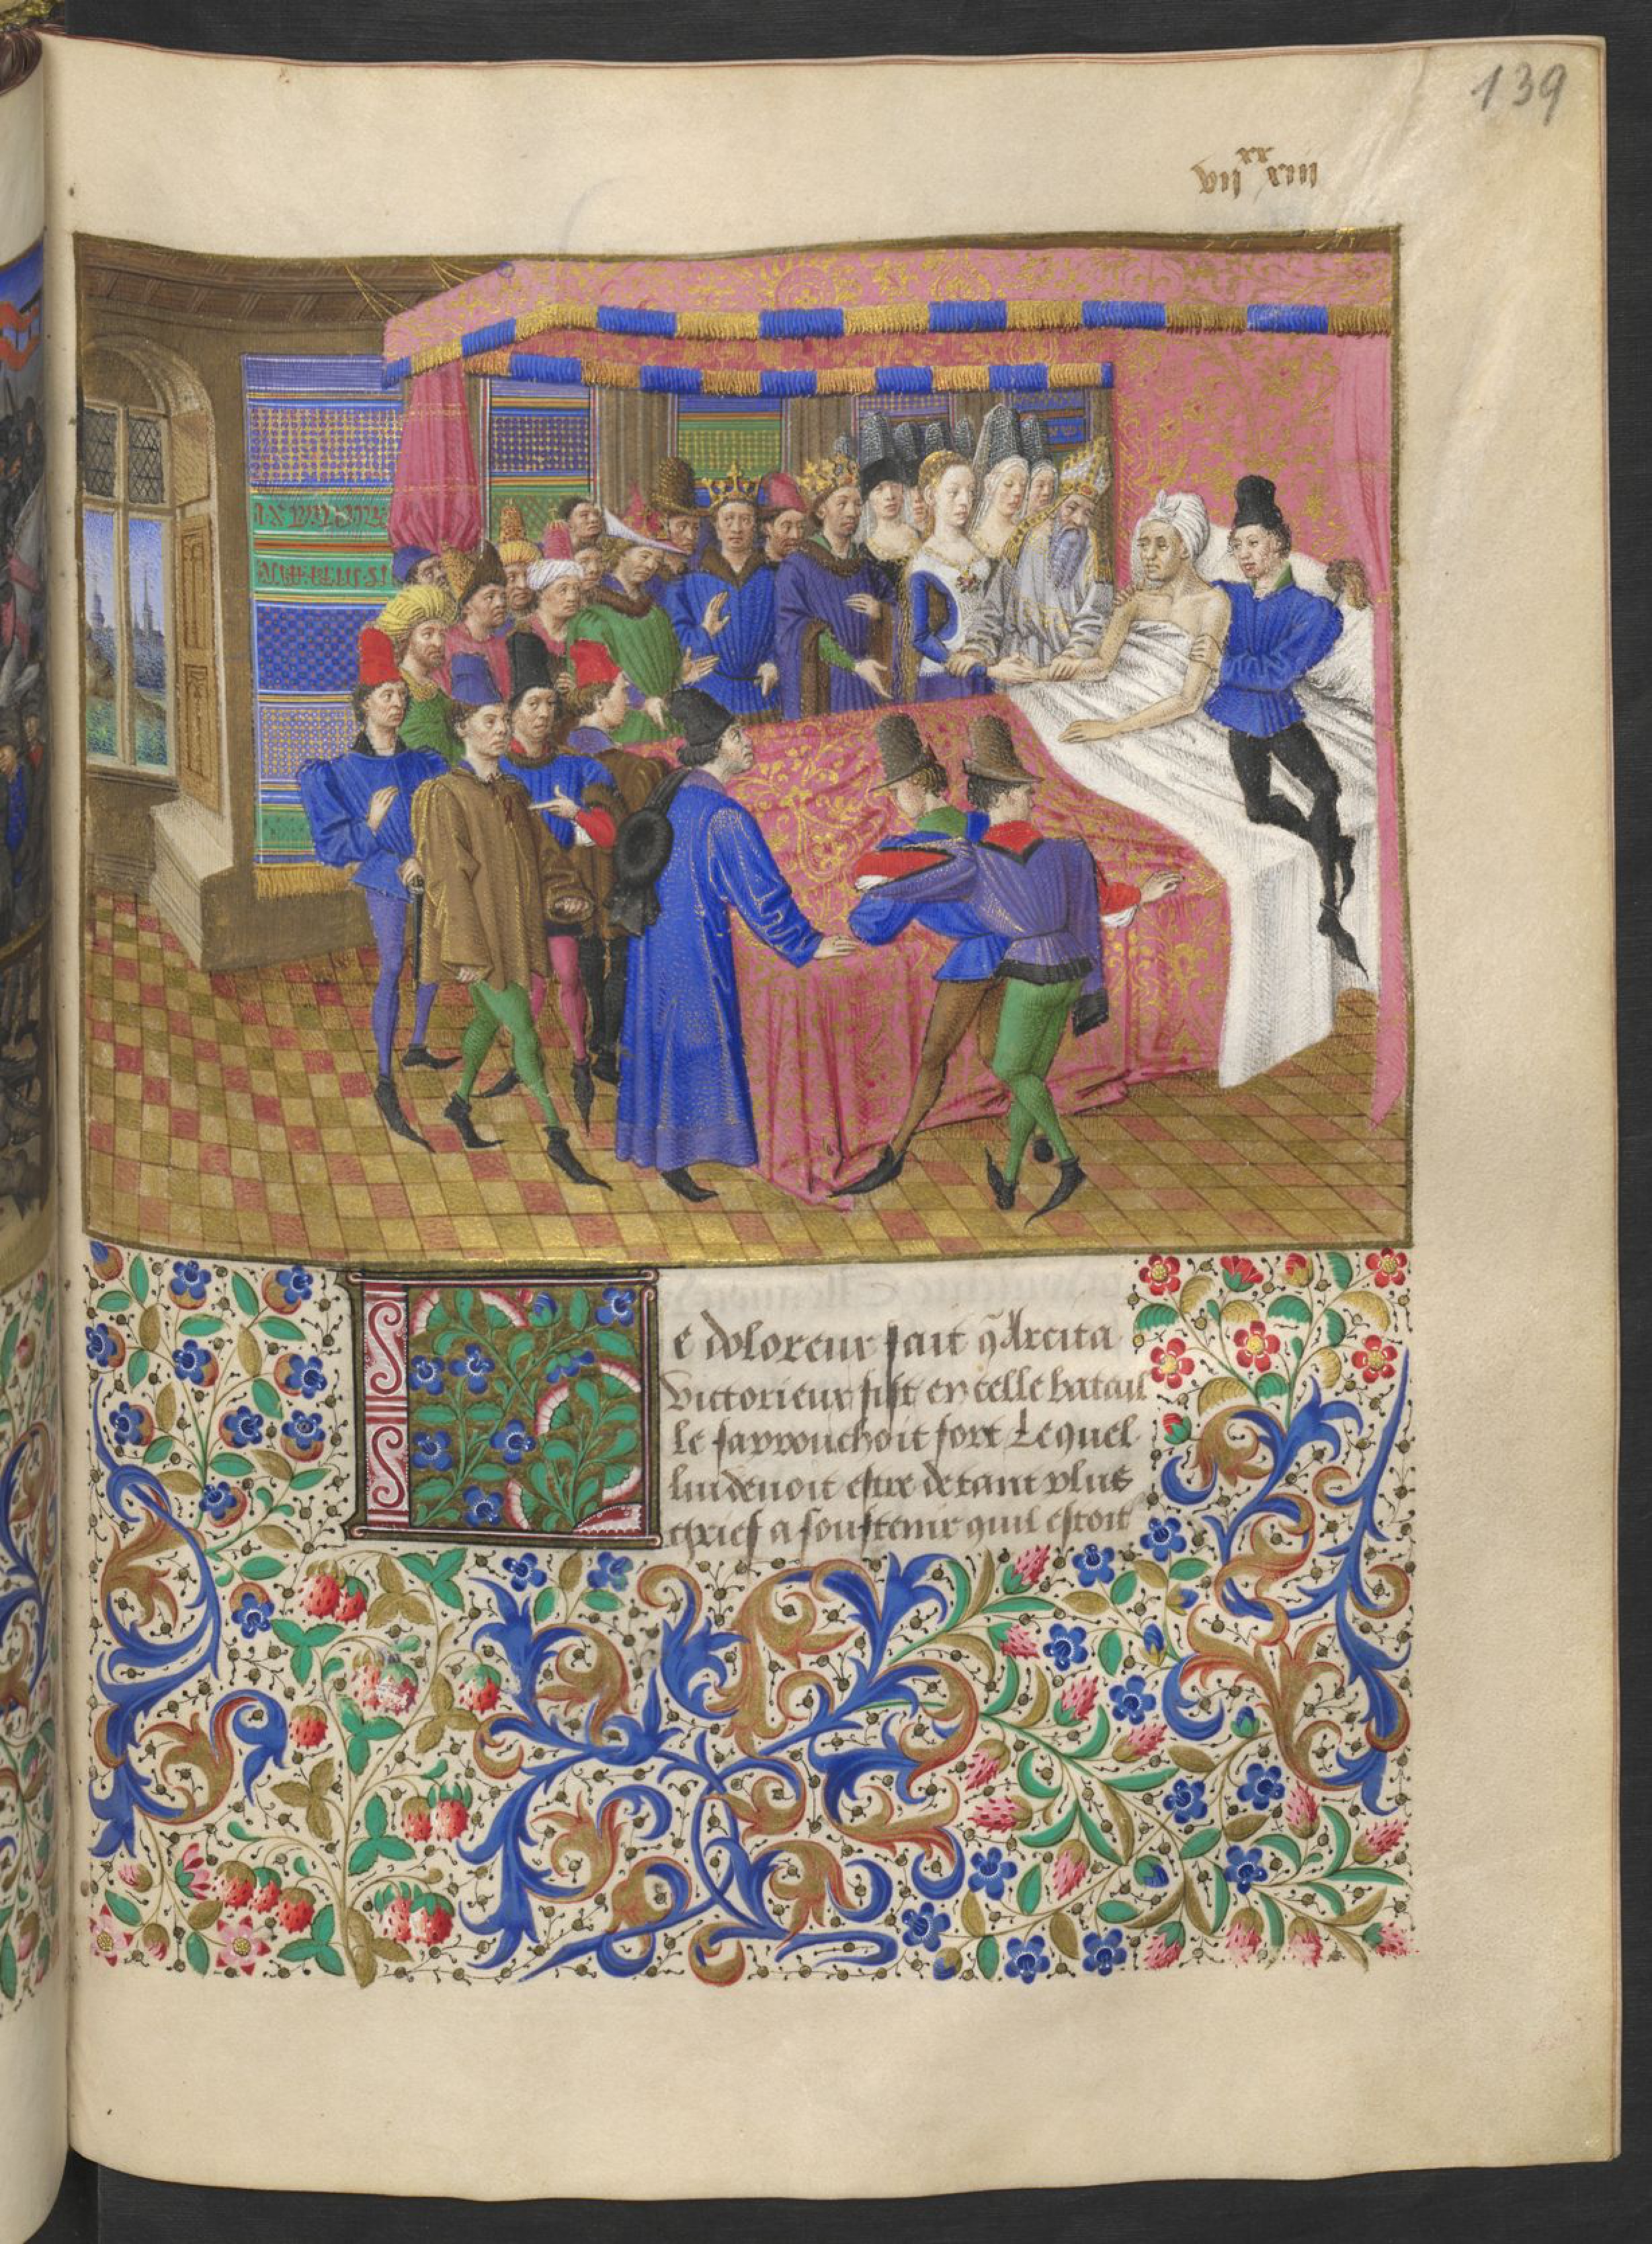 139
vii xx xiii
e doloreux fait q̃ Arcita
victorieux fist en celle batail
le sapprouchoit fort Lequel
lui devoit estre de tant plus
grief a soustenir quil estoit